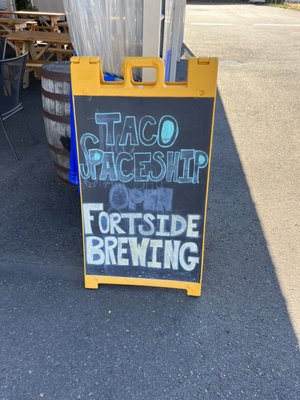 TACO
SPACESHIP
OPEN
FORTSIDE
BREWING